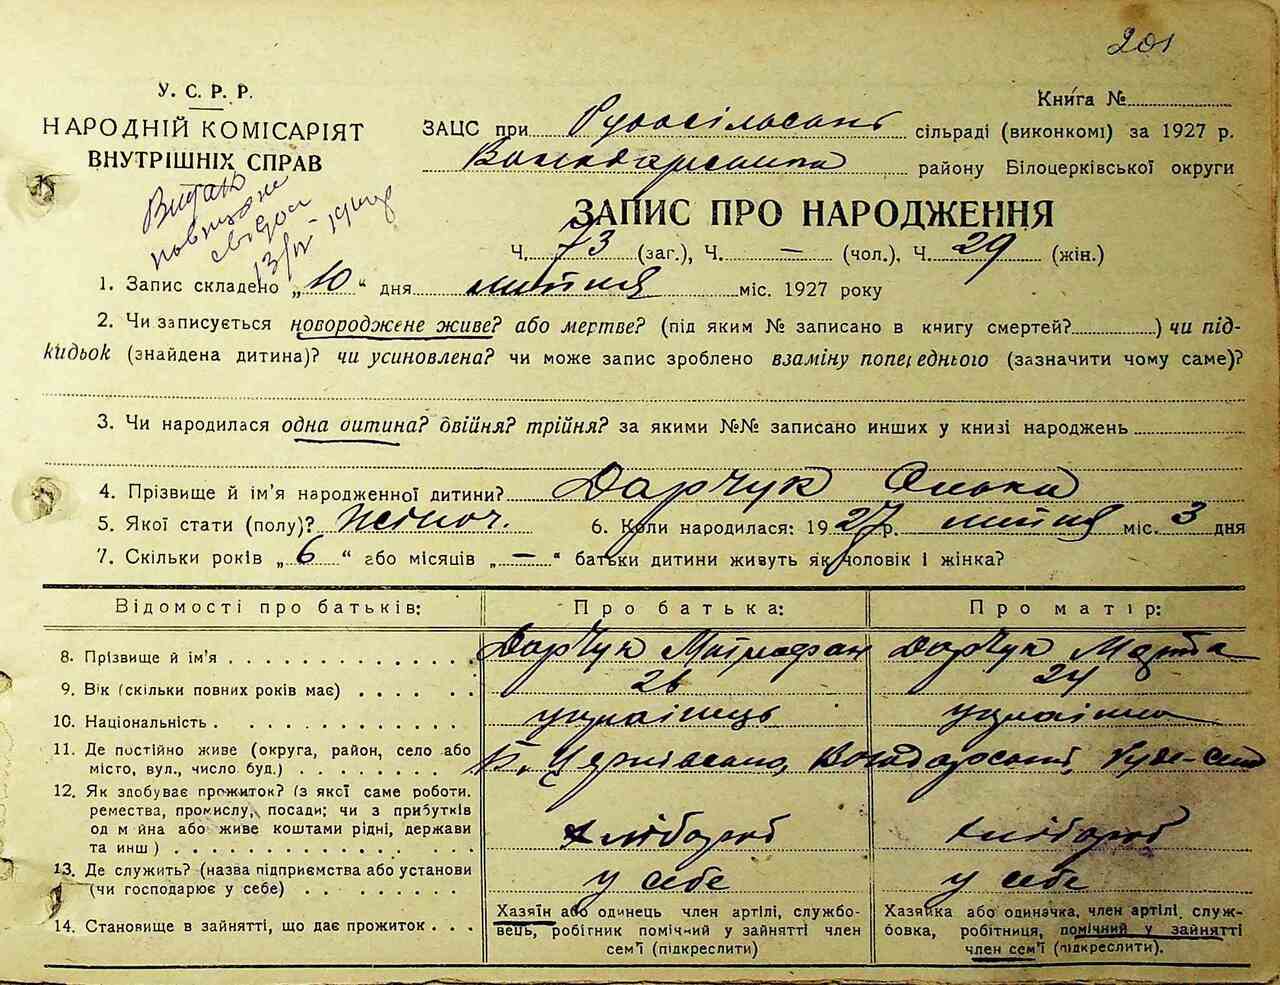 201
У. С. Р. Р.
НАРОДНІЙ КОМІСАРІЯТ
ВНУТРІШНІХ СПРАВ
Книга №
ЗАЦС при Рудосільський сільраді (виконкомі) за 1927 р.
Володарського району Білоцерківської округи
ЗАПИС ПРО НАРОДЖЕННЯ
Ч. 73 (заг.), Ч. — (чол.), Ч. 29 (жін.)
1. Запис складено „10“ дня липня міс. 1927 року
2. Чи записується новороджене живе? або мертве? (під яким № записано в книгу смертей?) чи під-
кидьок (знайдена дитина)? чи усиновлена? чи може запис зроблено взаміну попереднього (зазначити чому саме)?
3. Чи народилася одна дитина? двійня? трійня? за якими №№ записано инших у книзі народжень
4. Прізвище й ім'я народженної дитини? Дарчук
5. Якої стати (полу)? жіноч. 6. Коли народилася: 1927 р. липня міс. 3 дня
7. Скільки років „6“ або місяців „—“ батьки дитини живуть як чоловік і жінка?
Відомості про батьків: Про батька: Про матір:
8. Прізвище й ім'я Дарчук Митрофан Дарчук Марта
9. Вік (скільки повних років має) 26 24
10. Національність українець українка
11. Де постійно живе (округа, район, село або
місто, вул., число буд.) Б. Церківська, Володарський, Руде-село
12. Як здобуває прожиток? (з якої саме роботи,
ремества, промислу, посади; чи з прибутків
од майна або живе коштами рідні, держави
та инш) хлібороб хлібороб
13. Де служить? (назва підприємства або установи
(чи господарює у себе) у себе у себе
14. Становище в зайнятті, що дає прожиток
Хазяїн або одинець член артілі, службо-
вець, робігник помічний у зайнятті член
сем'ї (підкреслити)
Хазяйка або одиначка, член артілі, служ-
бовка, робітниця, помічний у зайнятті
член сем'ї (підкреслити).